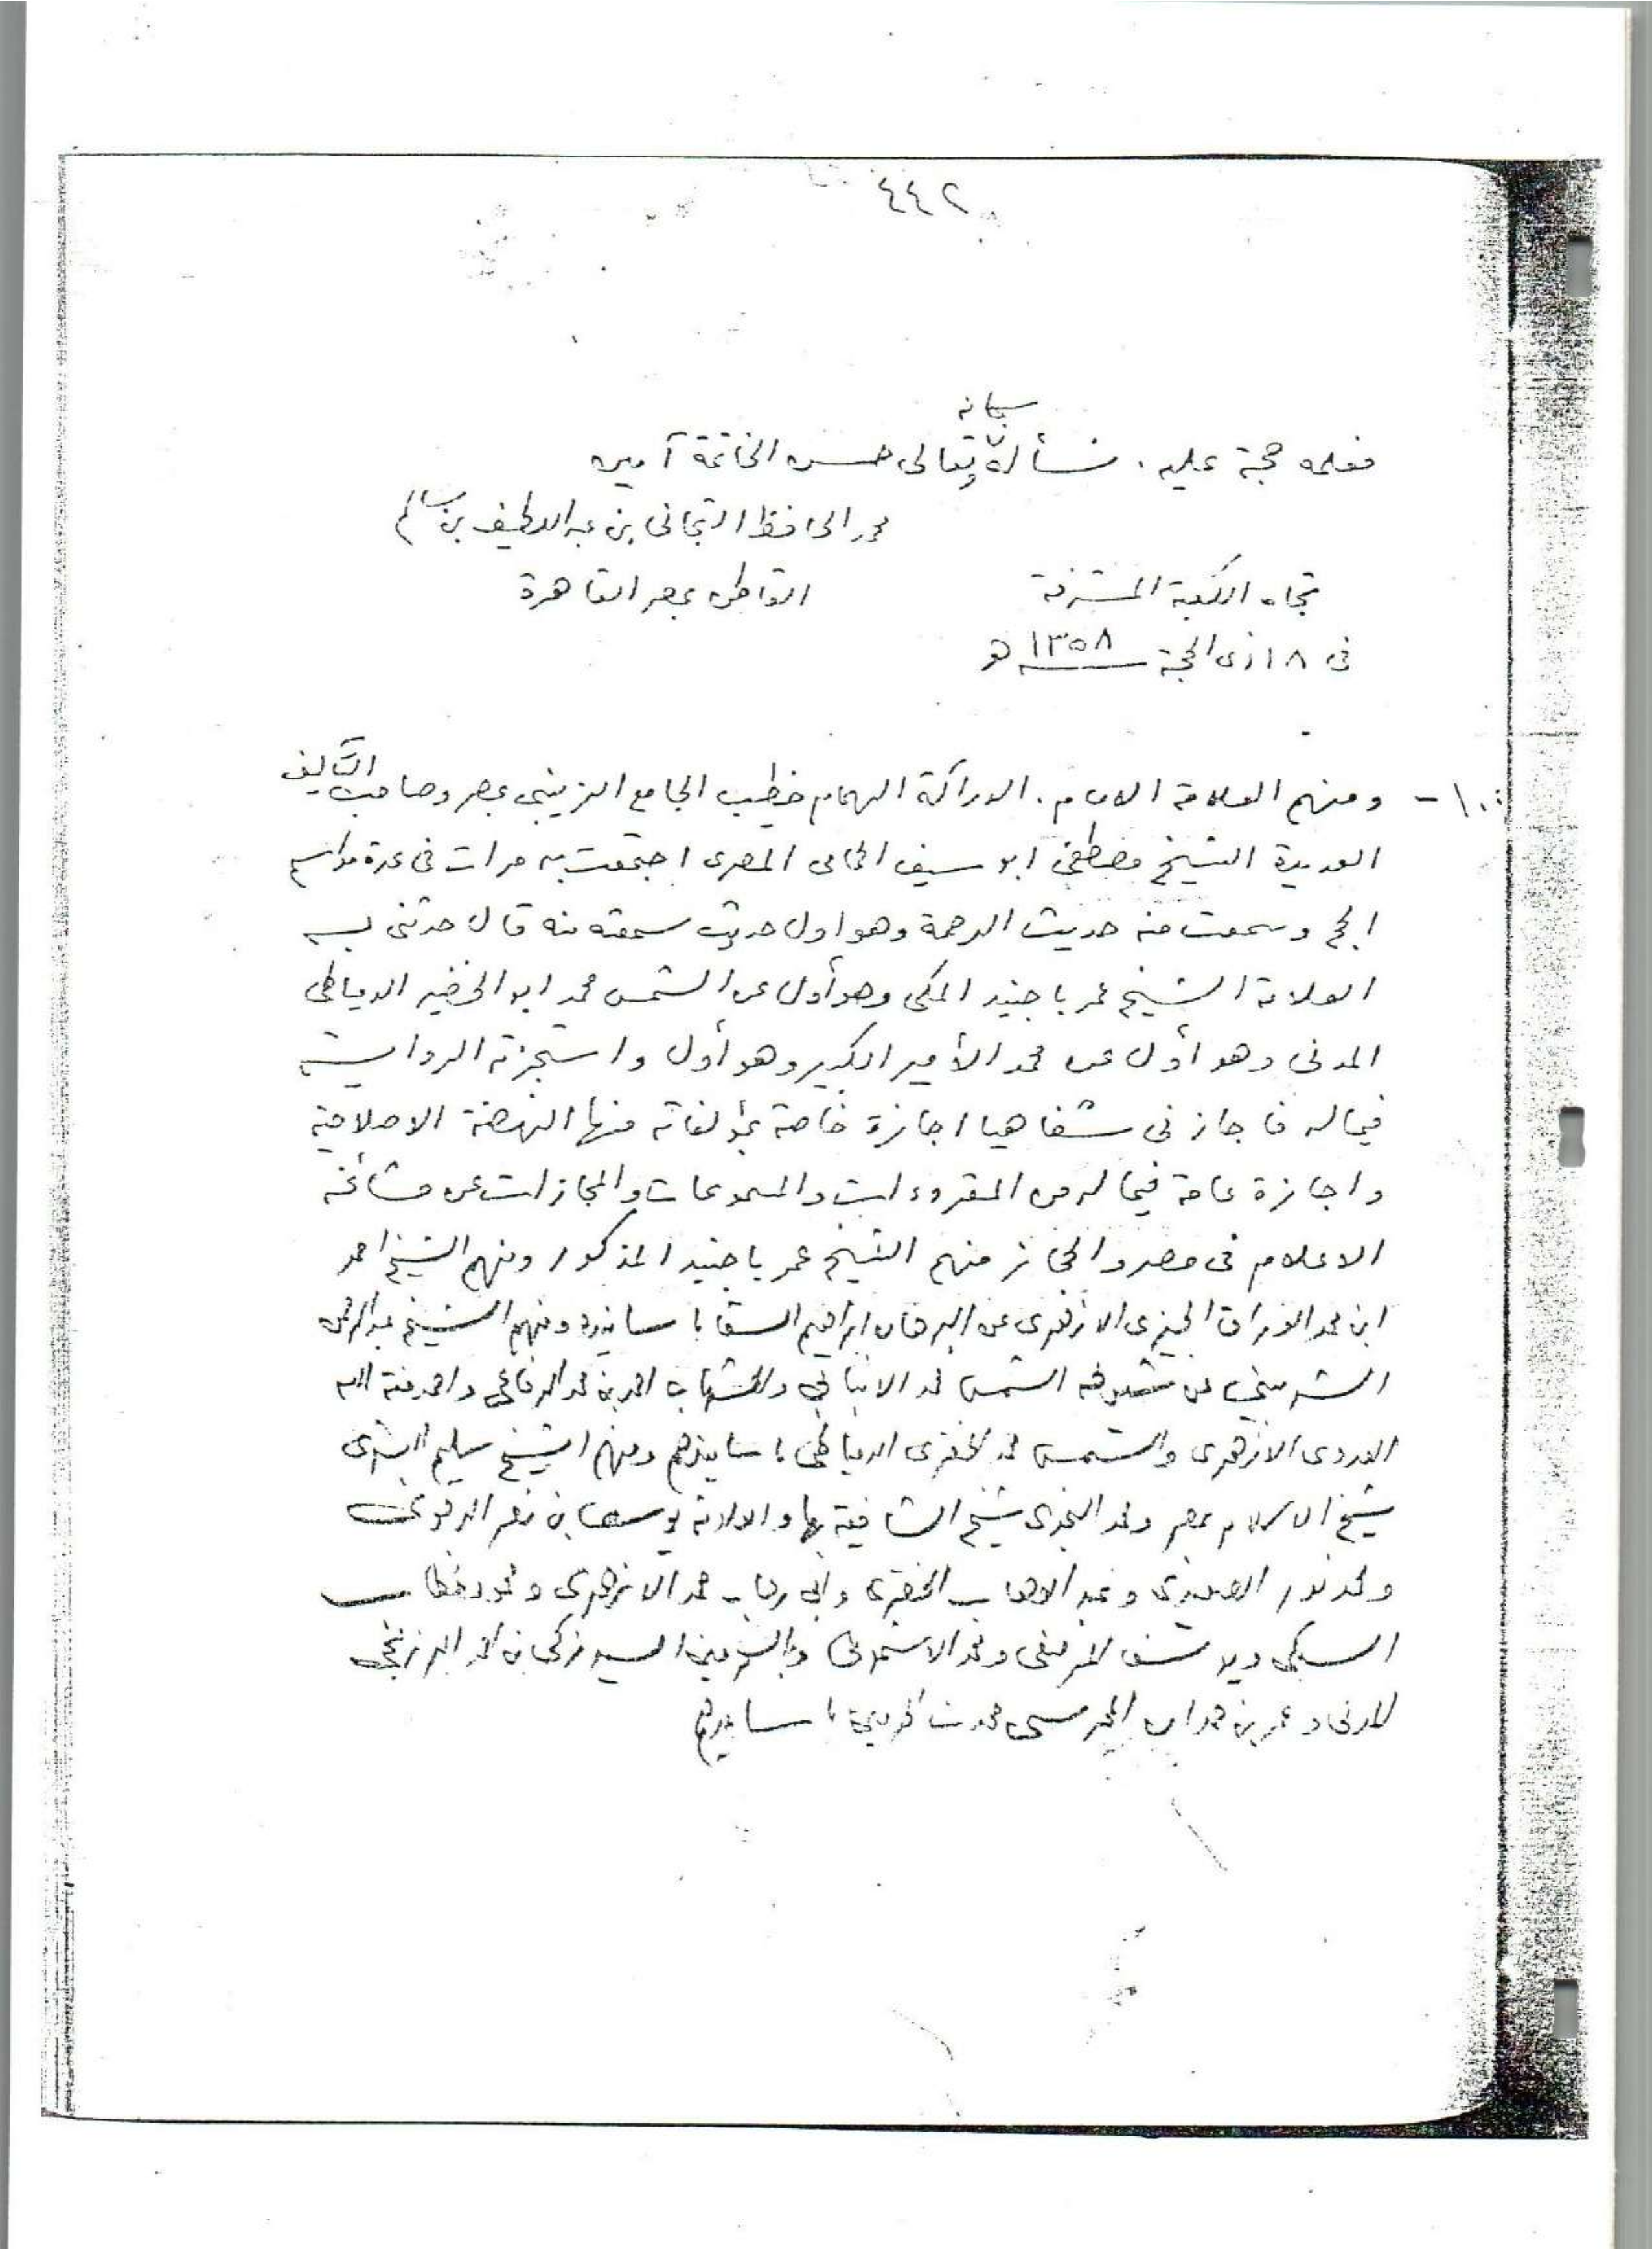 ٤٤٢
فعلمه حجة عليه . نسأله سبحانه وتعالى حسن الخاتمة آمين
محمد الحافظ التجانى بن عبد اللطيف بن سالم
تجاه الكعبة المشرفة القاطن بمصر القاهرة
فى ١٨ ذى الحجة ١٣٥٨ هـ
١٠ - ومنهم العلامة الامام . الدراكة الهمام خطيب الجامع الزينبى بمصر وصاحب التآليف
العديدة الشيخ مصطفى ابو سيف الحمامى المصرى اجتمعت به مرات فى عدة مواسم
الحج وسمعت منه حديث الرحمة وهو اول حديث سمعته منه قال حدثنى به
العلامة الشيخ عمر باجنيد المكى وهو أول عن الشمس محمد ابو الخضير الدمياطى
المدنى وهو أول عن محمد الأمير الكبير وهو أول واستجزته الرواية
فيما له فاجازنى شفاهيا اجازة خاصة بمؤلفاته منها النهضة الاصلاحية
واجازة عامة فيما له من المقروءات والمسموعات والمجازات عن مشائخه
الاعلام فى مصر والحجاز منهم الشيخ عمر باجنيد المذكور ومنهم الشيخ احمد
ابن محمد الوراق الجيزى الازهرى عن البرهان ابراهيم السقا باسانيده ومنهم الشيخ عبد الرحمن
الشربينى عن الشمس محمد الانبابى والشهاب احمد بن محمد الرفاعى واحمد منة الله
العدوى الازهرى والشمس محمد الخضرى الدمياطى باسانيدهم ومنهم الشيخ سليم البشرى
شيخ الاسلام بمصر ومحمد النجدى شيخ الشافعية بها والعلامة يوسف بن نصر
ومحمد نور وعبد الوهاب الخضرى وابى رحاب محمد الازهرى ومحمود خطاب
السبكى ويوسف المرصفى ومحمد الاشمونى والسيد زكى بن احمد البرزنجى
المدنى وعمر بن حمدان المحرسى محدث الحرمين باسانيدهم